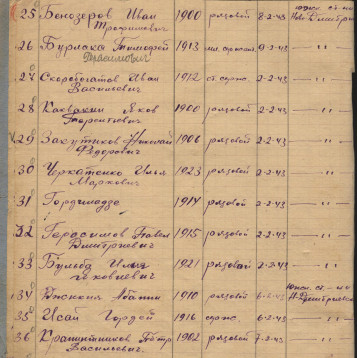 25 Бенозеров Иван 1900 рядовой 8-2-43
Трофимович
26 Бурлака Тимофей 1913 мл. сержан. 9-2-43 "
Герасимович
27 Скоробогатов Иван 1912 ст. серж. 2-2-43 "
Васильевич
28 Яков 1900 рядовой 2-2-43 "
Терентьевич
29 Закутиков Николай 1906 рядовой 2-2-43 "
Федорович
30 Черкатенко Илья 1923 рядовой 2-2-43 "
Маркович
31 1914 рядовой 2-2-43 "
32 Герасимов Павел 1915 рядовой 2-2-43 "
Дмитриевич
33 Бульба Илья 1921 рядовой 2-2-43 "
Яковлевич
34 1910 рядовой 6-2-43
35 Исай Гордей 1916 серж. 6-2-43 "
36 Крапивников Петр 1902 рядовой 7-2-43 "
Васильевич